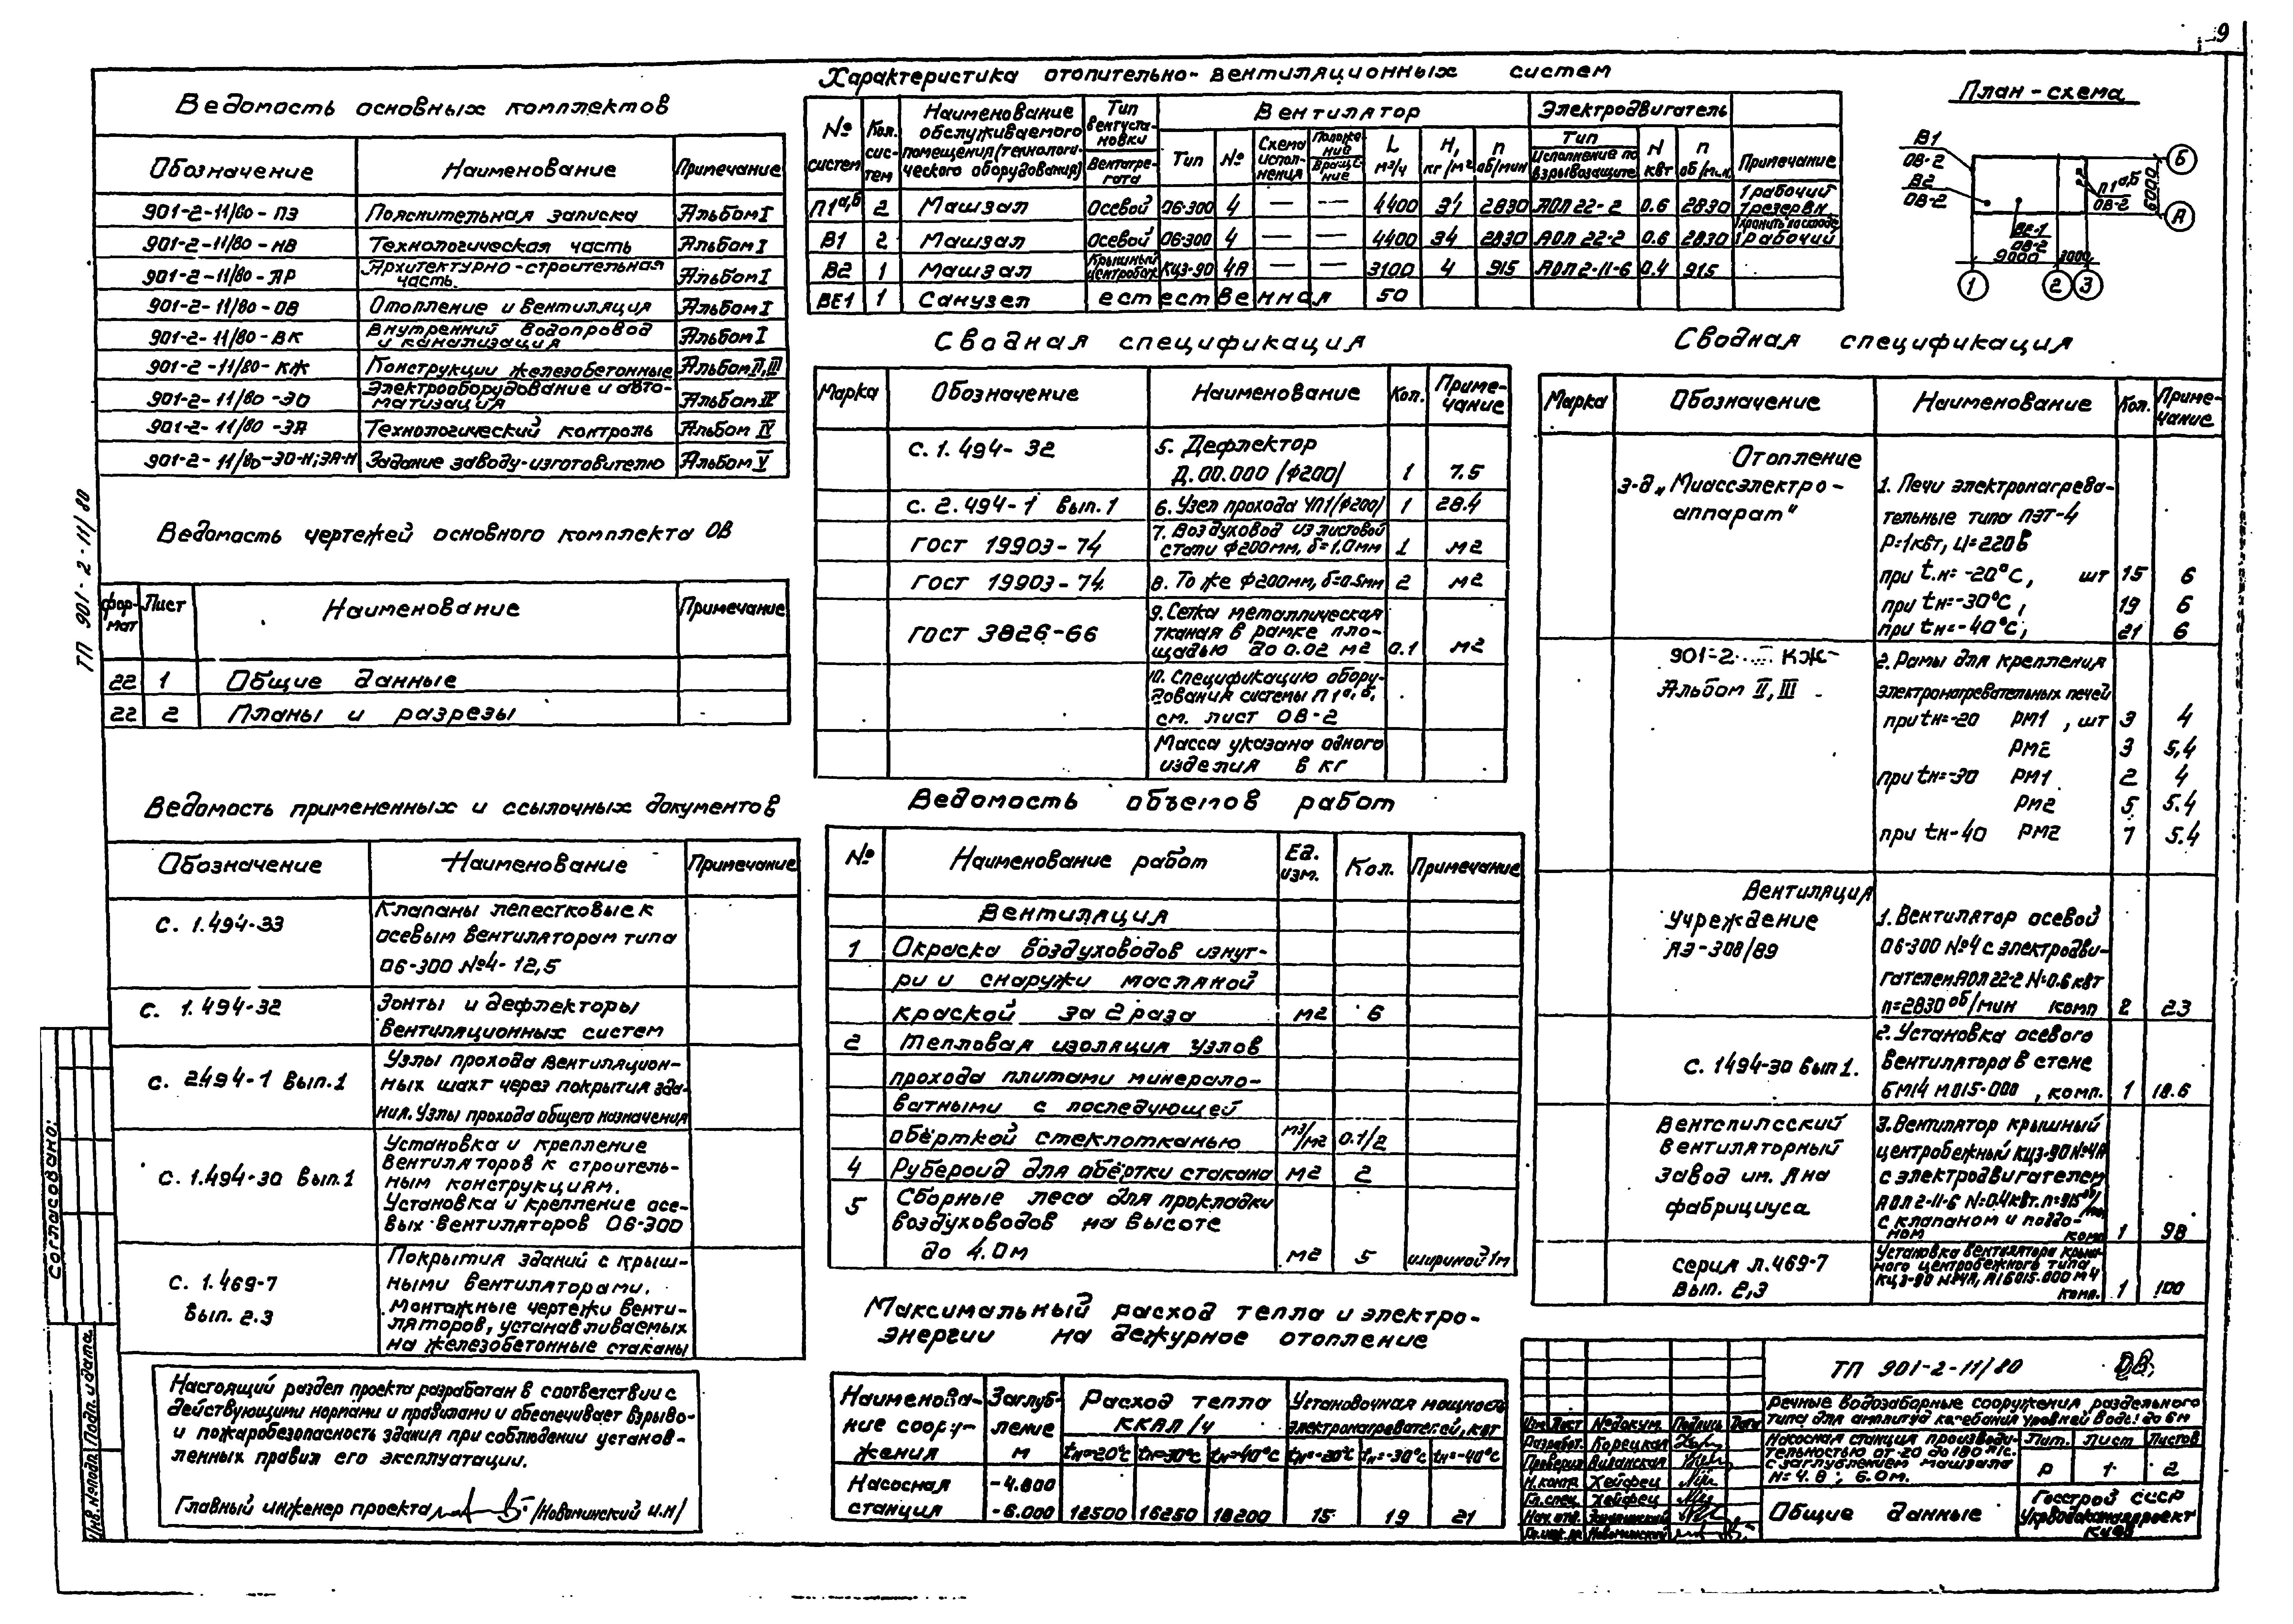 9
Ведомость основных комплектов
Обозначение Наименование Примечание
901-2-11/80-ПЗ Пояснительная записка Альбом I
901-2-11/80-НВ Технологическая часть Альбом I
901-2-11/80-АР Архитектурно-строительная часть. Альбом I
901-2-11/80-ОВ Отопление и вентиляция Альбом I
901-2-11/80-ВК Внутренний водопровод и канализация Альбом I
901-2-11/80-КЖ Конструкции железобетонные Альбом II, III
901-2-11/80-ЭО Электрооборудование и автоматизация Альбом IV
901-2-11/80-ЭА Технологический контроль Альбом IV
901-2-11/80-ЭО-Н; ЭА-Н Задание заводу-изготовителю Альбом V
ТП 901-2-11/80
Ведомость чертежей основного комплекта ОВ
Формат Лист Наименование Примечание
22 1 Общие данные
22 2 Планы и разрезы
Ведомость примененных и ссылочных документов
Обозначение Наименование Примечание
с. 1.494-33 Клапаны лепестковые к
осевым вентиляторам типа
06-300 №4-12,5
с. 1.494-32 Зонты и дефлекторы
вентиляционных систем
с. 2494-1 вып.1 Узлы прохода вентиляцион-
ных шахт через покрытия зда-
ния. Узлы прохода общего назначения
с. 1.494-30 вып.1 Установка и крепление
вентиляторов к строитель-
ным конструкциям.
Установка и крепление осе-
вых вентиляторов 06-300
с. 1.469-7 вып. 2.3 Покрытия зданий с крыш-
ными вентиляторами.
Монтажные чертежи венти-
ляторов, устанавливаемых
на железобетонные стаканы
Настоящий раздел проекта разработан в соответствии с
действующими нормами и правилами и обеспечивает взрыво-
и пожаробезопасность здания при соблюдении установ-
ленных правил его эксплуатации.
Главный инженер проекта /Новоминский И.М/
Согласовано:
Инв. № подл. Подп. и дата.
Характеристика отопительно-вентиляционных систем
№ систем Кол. систем Наименование обслуживаемого помещения (технологического оборудования) Тип вентустановки Вентагрегата Вентилятор Электродвигатель Примечание
Тип № Схема исполнения Положение Вращение L м³/ч H, кг/м² n об/мин Тип Исполнение по взрывозащите N квт n об/мин.
П1а,б 2 Машзал Осевой 06-300 4 — — 4400 34 2830 АОЛ 22-2 0.6 2830 1 рабочий 1 резервн. Хранить на складе
В1 2 Машзал Осевой 06-300 4 — — 4400 34 2830 АОЛ 22-2 0.6 2830 1 рабочий
В2 1 Машзал Крышный центробеж. КЦ3-90 4А — — 3100 4 915 АОЛ 2-11-6 0.4 915
ВЕ1 1 Санузел естественная 50
План-схема
В1
ОВ-2
В2
ОВ-2
П1а,б
ОВ-2
ВЕ-1
ОВ-2
9000
3000
6000
Б
А
1 2 3
Сводная спецификация
Марка Обозначение Наименование Кол. Примечание
с. 1.494-32 5. Дефлектор
Д.00.000 /Ф200/ 1 7.5
с. 2.494-1 вып.1 6. Узел прохода УП1/Ф200/ 1 28.4
ГОСТ 19903-74 7. Воздуховод из листовой
стали Ф200мм, δ=1,0мм 1 м2
ГОСТ 19903-74 8. То же Ф200мм, δ=0.5мм 2 м2
ГОСТ 3826-66 9. Сетка металлическая
тканая в рамке пло-
щадью до 0.02 м2 0.1 м2
10. Спецификацию обору-
дования системы П1а,б,
см. лист ОВ-2
Масса указана одного
изделия в кг
Ведомость объемов работ
№ Наименование работ Ед. изм. Кол. Примечание
Вентиляция
1 Окраска воздуховодов изнут-
ри и снаружи масляной
краской за 2 раза м2 6
2 Тепловая изоляция узлов
прохода плитами минерало-
ватными с последующей
обёрткой стеклотканью м3/м2 0.1/2
4 Рубероид для обёртки стакана м2 2
5 Сборные леса для прокладки
воздуховодов на высоте
до 4.0м м2 5 шириной 1м
Максимальный расход тепла и электро-
энергии на дежурное отопление
Наименование сооружения Заглубление м Расход тепла ККАЛ/ч Установочная мощность электронагревателей, квт
tн=-20°с tн=-30°с tн=-40°с tн=-20°с tн=-30°с tн=-40°с
Насосная станция -4.800
-6.000 12500 16250 18200 15 19 21
Сводная спецификация
Марка Обозначение Наименование Кол. Примечание
Отопление
з-д „Миассэлектро-
аппарат“ 1. Печи электронагрева-
тельные типа ПЭТ-4
P=1квт, U=220в
при t.н=-20°С, шт 15 6
при tн=-30°С, 19 6
при tн=-40°С, 21 6
901-2 ... КЖ-
Альбом II, III 2. Рамы для крепления
электронагревательных печей
при tн=-20 РМ1, шт 3 4
РМ2 3 5,4
при tн=-30 РМ1 2 4
РМ2 5 5.4
при tн-40 РМ2 7 5.4
Вентиляция
Учреждение
ЯЭ-308/89 1. Вентилятор осевой
06-300 №4 с электродви-
гателем АОЛ 22-2 N=0.6 квт
n=2830 об/мин комп 2 23
с. 1494-30 вып 1. 2. Установка осевого
вентилятора в стене
БМ14 М015-000, комп. 1 18.6
Вентспилсский
вентиляторный
завод им. Яна
Фабрициуса 3. Вентилятор крышный
центробежный КЦ3-90 №4А
с электродвигателем
АОЛ 2-11-6 N=0.4квт. n=915 об/мин
с клапаном и поддо-
ном комп 1 98
серия л.469-7
вып. 2,3 Установка вентилятора крыш-
ного центробежного типа
КЦ3-90 №4А, А16015.000 М4
комп. 1 100
ТП 901-2-11/80 ОВ
Речные водозаборные сооружения раздельного
типа для амплитуд колебания уровней воды до 6м
Насосная станция производи-
тельностью от 20 до 180 л/с.
с заглублением машзала
Н=4.8; 6.0м.
Лит. Лист Листов
Р 1 2
Общие данные
Госстрой СССР
Укрводоканалпроект
Киев
Изм. Лист № докум. Подпись Дата
Разработ. Корецкая
Проверил Виланская
Н. контр. Хейфец
Гл. спец. Хейфец
Нач. отд.
Гл. инж. пр. Новоминский